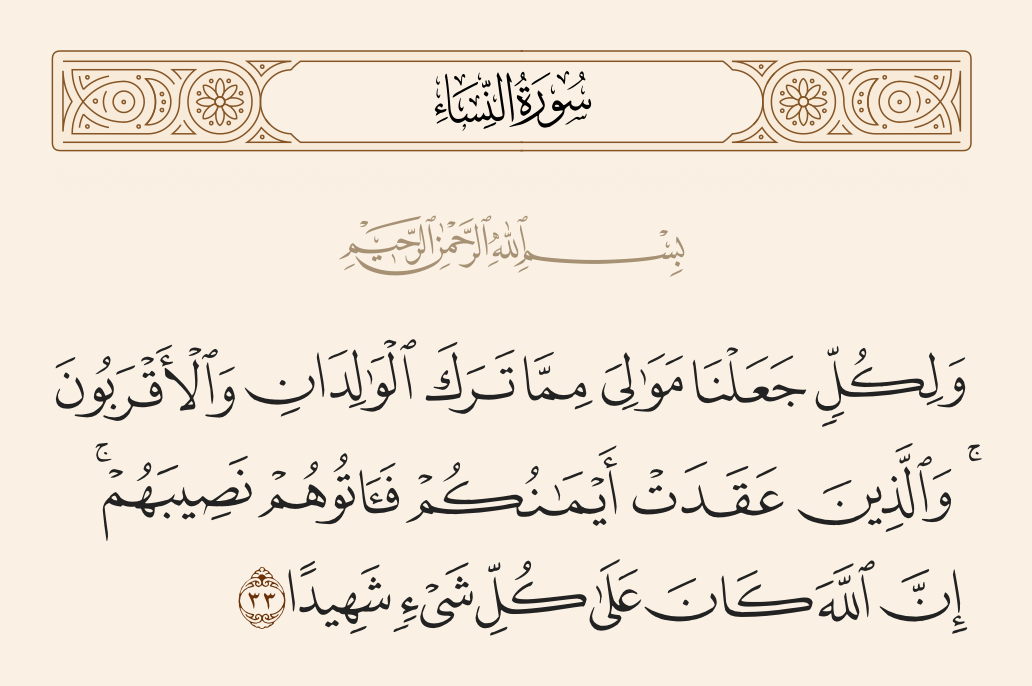 سُورَةُ النِّسَاءِ
بِسْمِ ٱللَّهِ ٱلرَّحْمَٰنِ ٱلرَّحِيمِ
وَلِكُلٍّ جَعَلْنَا مَوَٰلِىَ مِمَّا تَرَكَ ٱلْوَٰلِدَانِ وَٱلْأَقْرَبُونَ
ۚ وَٱلَّذِينَ عَقَدَتْ أَيْمَٰنُكُمْ فَـَٔاتُوهُمْ نَصِيبَهُمْ ۚ
إِنَّ ٱللَّهَ كَانَ عَلَىٰ كُلِّ شَىْءٍ شَهِيدًا ٣٣